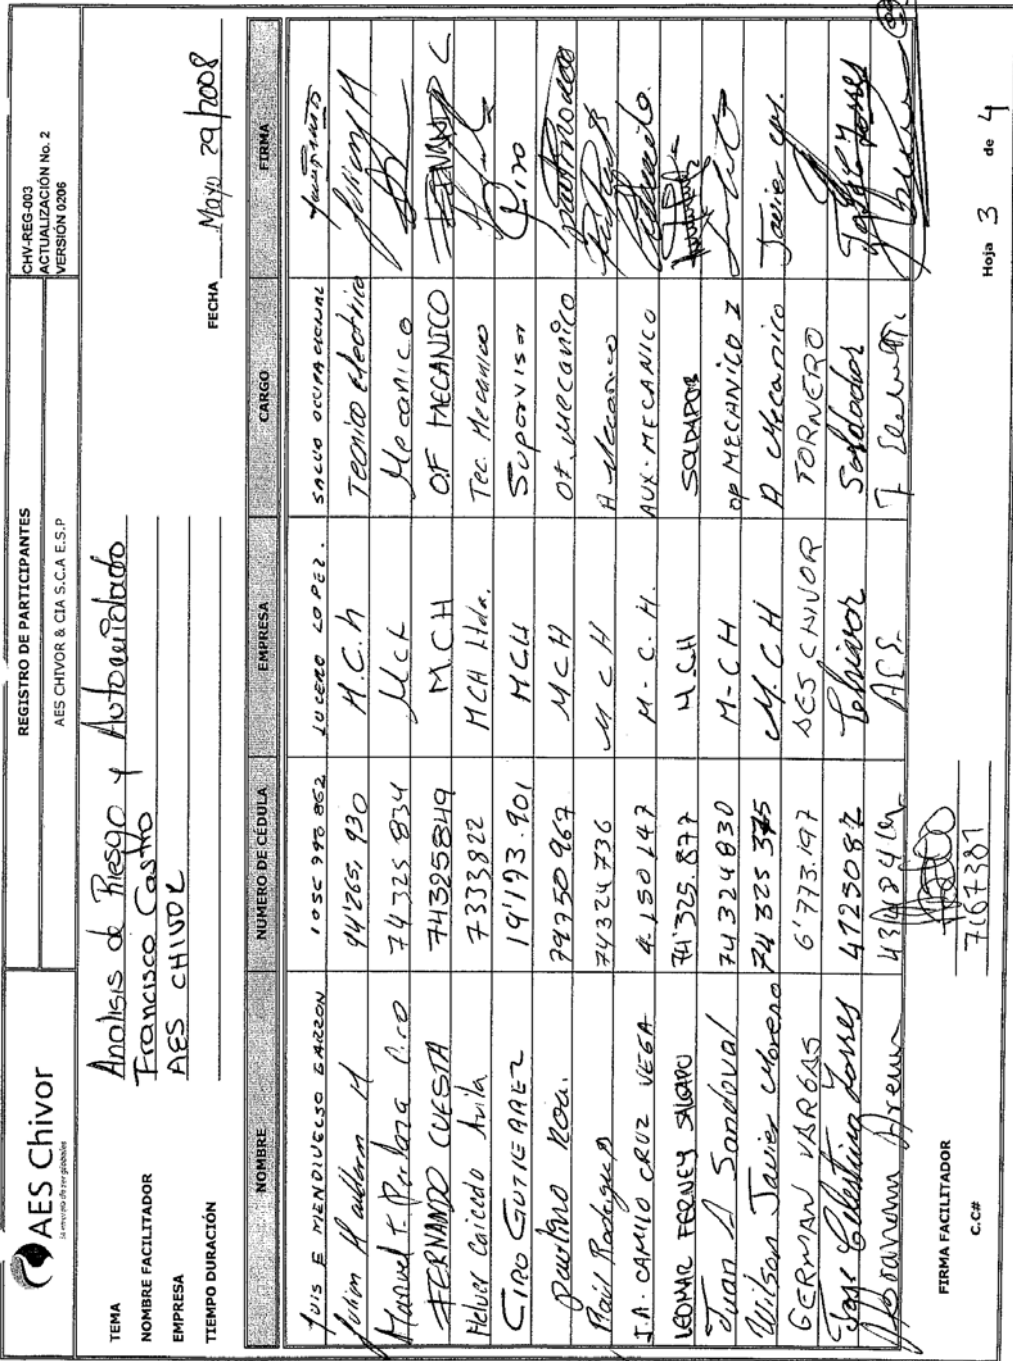 AES Chivor
La energía de ser globales
REGISTRO DE PARTICIPANTES
AES CHIVOR & CIA S.C.A E.S.P
CHV-REG-003
ACTUALIZACIÓN No. 2
VERSIÓN 0206
TEMA Analisis de Riesgo y Autocuidado
NOMBRE FACILITADOR Francisco Castro
EMPRESA AES CHIVOR
TIEMPO DURACIÓN
FECHA Mayo 29/2008
NOMBRE NUMERO DE CÉDULA EMPRESA CARGO FIRMA
LUIS E MENDIVELSO GARZON 1056 798 862 LUCERO LOPEZ. SALUD OCUPACIONAL
Julian M 44265, 930 M.C.h Tecnico electrico Julian M
Manuel 74 325 834 McH Mecanico
FERNANDO CUESTA 74325849 MCH O.F MECANICO FERNANDO C
Helver Caicedo Avila 7333822 MCH Ltda. Tec. Mecanico
CIRO GUTIERREZ 19'193.901 MCH Supervisor Ciro
Paulino Roa. 79750967 MCH Of. Mecanico
Raúl Rodríguez 74324736 MCH A Mecanico
J.A. CAMILO CRUZ VEGA 4.150 147 M.C.H. AUX-MECANICO
LEOMAR FERNEY SALGADO 74'325.877 M.CH SOLDADOR
Juan A Sandoval 74324830 M-CH OP MECANICO 2
Wilson Javier Moreno 74 325 375 M.CH A Mecanico Javier
GERMAN VARGAS 6'773.197 AES CHIVOR TORNERO
Jose Celestino Torres 4125082 Chivor Soldador Torres
AES
FIRMA FACILITADOR
C.C# 7167381
Hoja 3 de 4